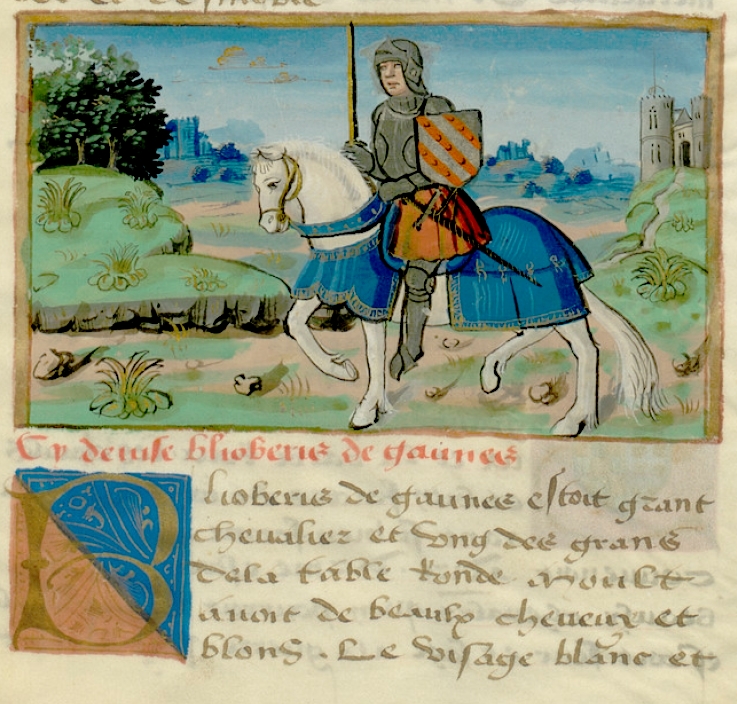 Cy deuise blioberis de gaunes
Blioberis de gaunes estoit grant
cheualier et vng des grans
dela table Ronde moult
auoit de beaulx cheueux et
blons . Le visage blanc et